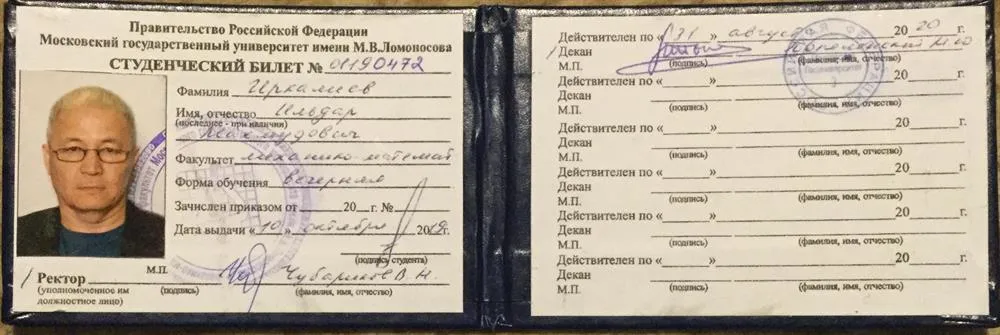 Правительство Российской Федерации
Московский государственный университет имени М.В.Ломоносова
СТУДЕНЧЕСКИЙ БИЛЕТ № 01190472
Фамилия Иркалиев
Имя, отчество Ильдар
(последнее - при наличии)
Махмудович
Факультет механико-математ
Форма обучения вечерняя
Зачислен приказом от 20 г. №
Дата выдачи «10» октября 2019г.
(подпись студента)
М.П.
Ректор Чубариков В. Н.
(уполномоченное им должностное лицо) (подпись) (фамилия, имя, отчество)
Действителен по «31» август 2020 г.
Декан
М.П. (подпись) (фамилия, имя, отчество)
Действителен по « » 20 г.
Декан
М.П. (подпись) (фамилия, имя, отчество)
Действителен по « » 20 г.
Декан
М.П. (подпись) (фамилия, имя, отчество)
Действителен по « » 20 г.
Декан
М.П. (подпись) (фамилия, имя, отчество)
Действителен по « » 20 г.
Декан
М.П. (подпись) (фамилия, имя, отчество)
Действителен по « » 20 г.
Декан
М.П. (подпись) (фамилия, имя, отчество)